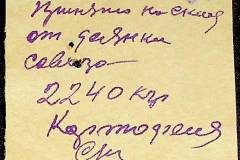 Принято на склад
от делянки
совхоза
2240 кгр
Картофеля